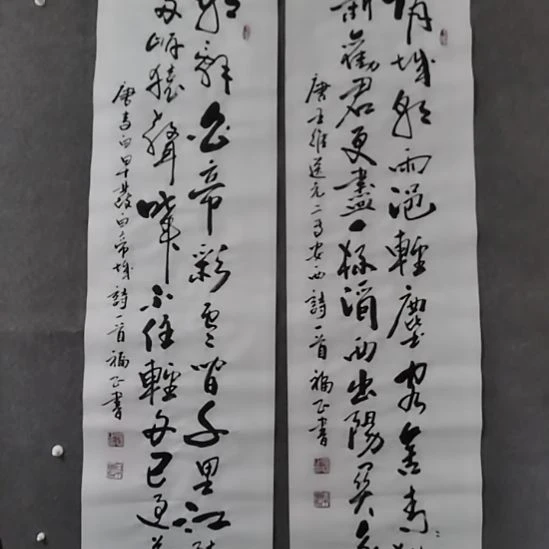 渭城朝雨浥輕塵客舍青
新勸君更盡一杯酒西出陽關無
唐王維送元二使安西詩一首 福正書
朝辭白帝彩雲間千里江
兩岸猿聲啼不住輕舟已過
唐李白早發白帝城詩一首 福正書